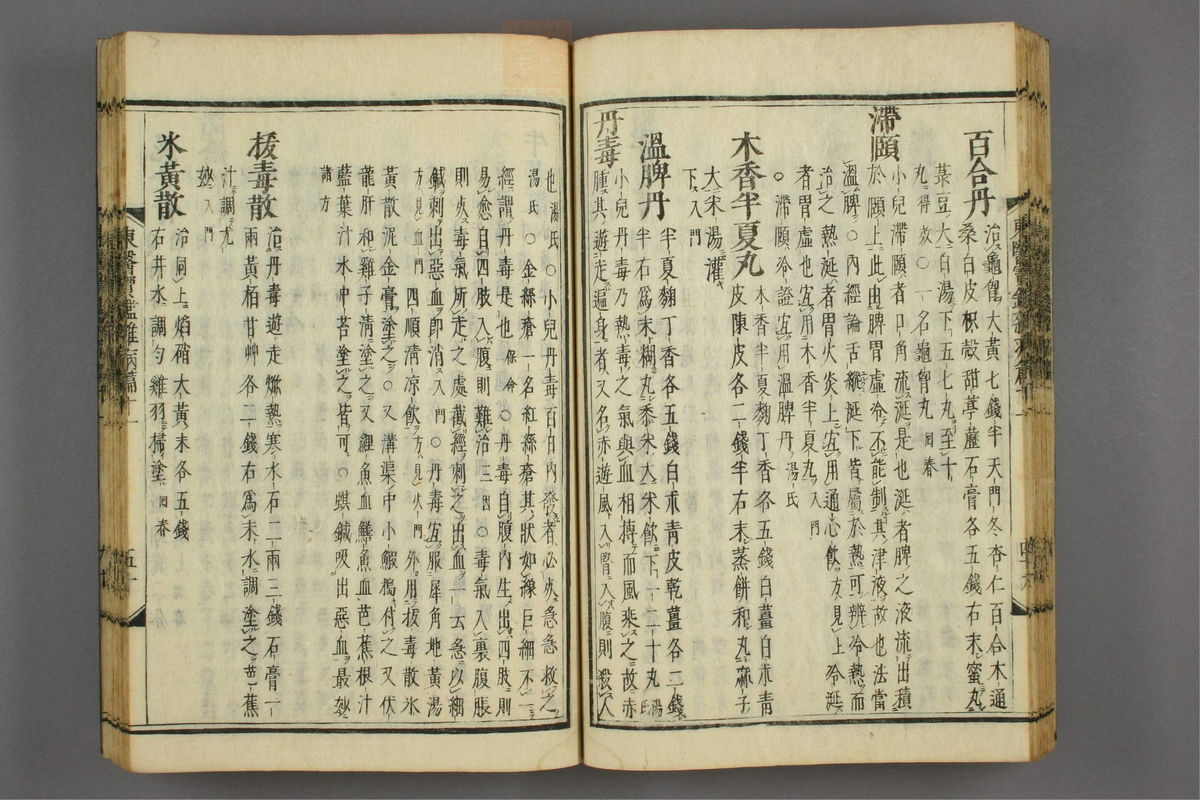 百合丹 治龜胷大黃七錢半天門冬杏仁百合木通
桑白皮枳殼甜葶藶石膏各五錢右末蜜丸
菉豆大白湯下五七丸至十
丸得效○一名龜胷丸回春
滯頤 小兒滯頤者口角流涎是也涎者脾之液流出積
於頤上此由脾胃虛冷不能制其津液故也法當
溫脾○內經論舌縱涎下皆屬於熱可辨冷熱而
治之熱涎者胃火炎上宜用通心飮方見上冷涎
者胃虛也宜用木香半夏丸入門
○滯頤冷證宜用溫脾丹湯氏
木香半夏丸 木香半夏麴丁香各五錢白薑白朮青
皮陳皮各二錢半右末蒸餅和丸麻子
大米湯灌
下入門
溫脾丹 半夏麴丁香各五錢白朮青皮乾薑各二錢
半右爲末糊丸黍米大米飮下一二十丸湯氏
丹毒 小兒丹毒乃熱毒之氣與血相搏而風乘之故赤
腫其遊走遍身者又名赤遊風入腎入腹則殺人
也湯氏○小兒丹毒百日內發者必死急急救之
湯氏○金絲瘡一名紅絲瘡其狀如線巨細不一
經謂丹毒是也保命○丹毒自腹內生出四肢則
易愈自四肢入腹則難治三因○毒氣入裏腹脹
則死毒氣所走之處截經刺之出血一云急以細
鍼刺出惡血卽消入門○丹毒宜服犀角地黃湯
方見血門四順淸凉飮方見火門外用拔毒散氷
黃散泥金膏塗之○又溝渠中小鰕搗付之又伏
龍肝和雞子淸塗之又鯉魚血鱔魚血芭蕉根汁
藍葉汁水中苔塗之皆可○蜞鍼吸出惡血最妙
諸方
拔毒散 治丹毒遊走燉熱寒水石二兩三錢石膏一
兩黃栢甘艸各二錢右爲末水調塗之芭蕉
汁調尤
妙入門
氷黃散 治同上焰硝大黃末各五錢
右井水調勻雞羽掃塗回春